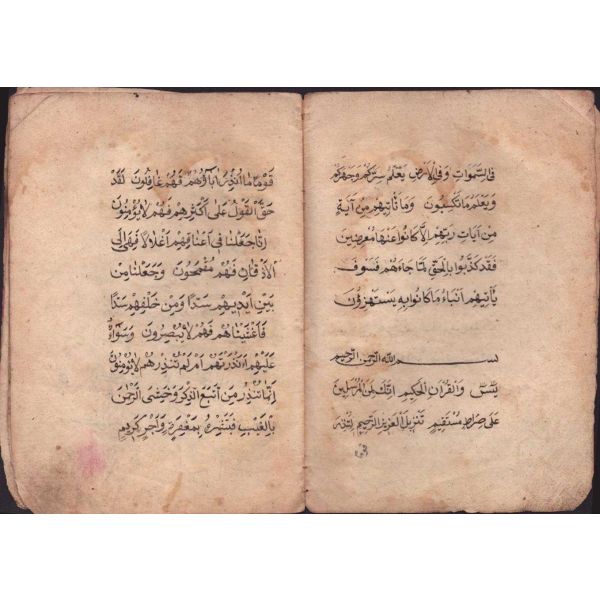 في السموات وفي الارض يعلم سركم وجهركم
ويعلم ما تكسبون وما تأتيهم من آية
من آيات ربهم الا كانوا عنها معرضين
فقد كذبوا بالحق لما جاءهم فسوف
يأتيهم أنباء ما كانوا به يستهزؤن
بسم الله الرحمن الرحيم
يس والقرآن الحكيم انك لمن المرسلين
على صراط مستقيم تنزيل العزيز الرحيم لتنذر
قوما ما انذر اباؤهم فهم غافلون لقد
حق القول على أكثرهم فهم لا يؤمنون
انا جعلنا في اعناقهم اغلالا فهي الى
الاذقان فهم مقمحون وجعلنا من
بين ايديهم سدا ومن خلفهم سدا
فاغشيناهم فهم لا يبصرون وسواء
عليهم ءانذرتهم ام لم تنذرهم لا يؤمنون
انما تنذر من اتبع الذكر وخشى الرحمن
بالغيب فبشره بمغفرة واجر كريم